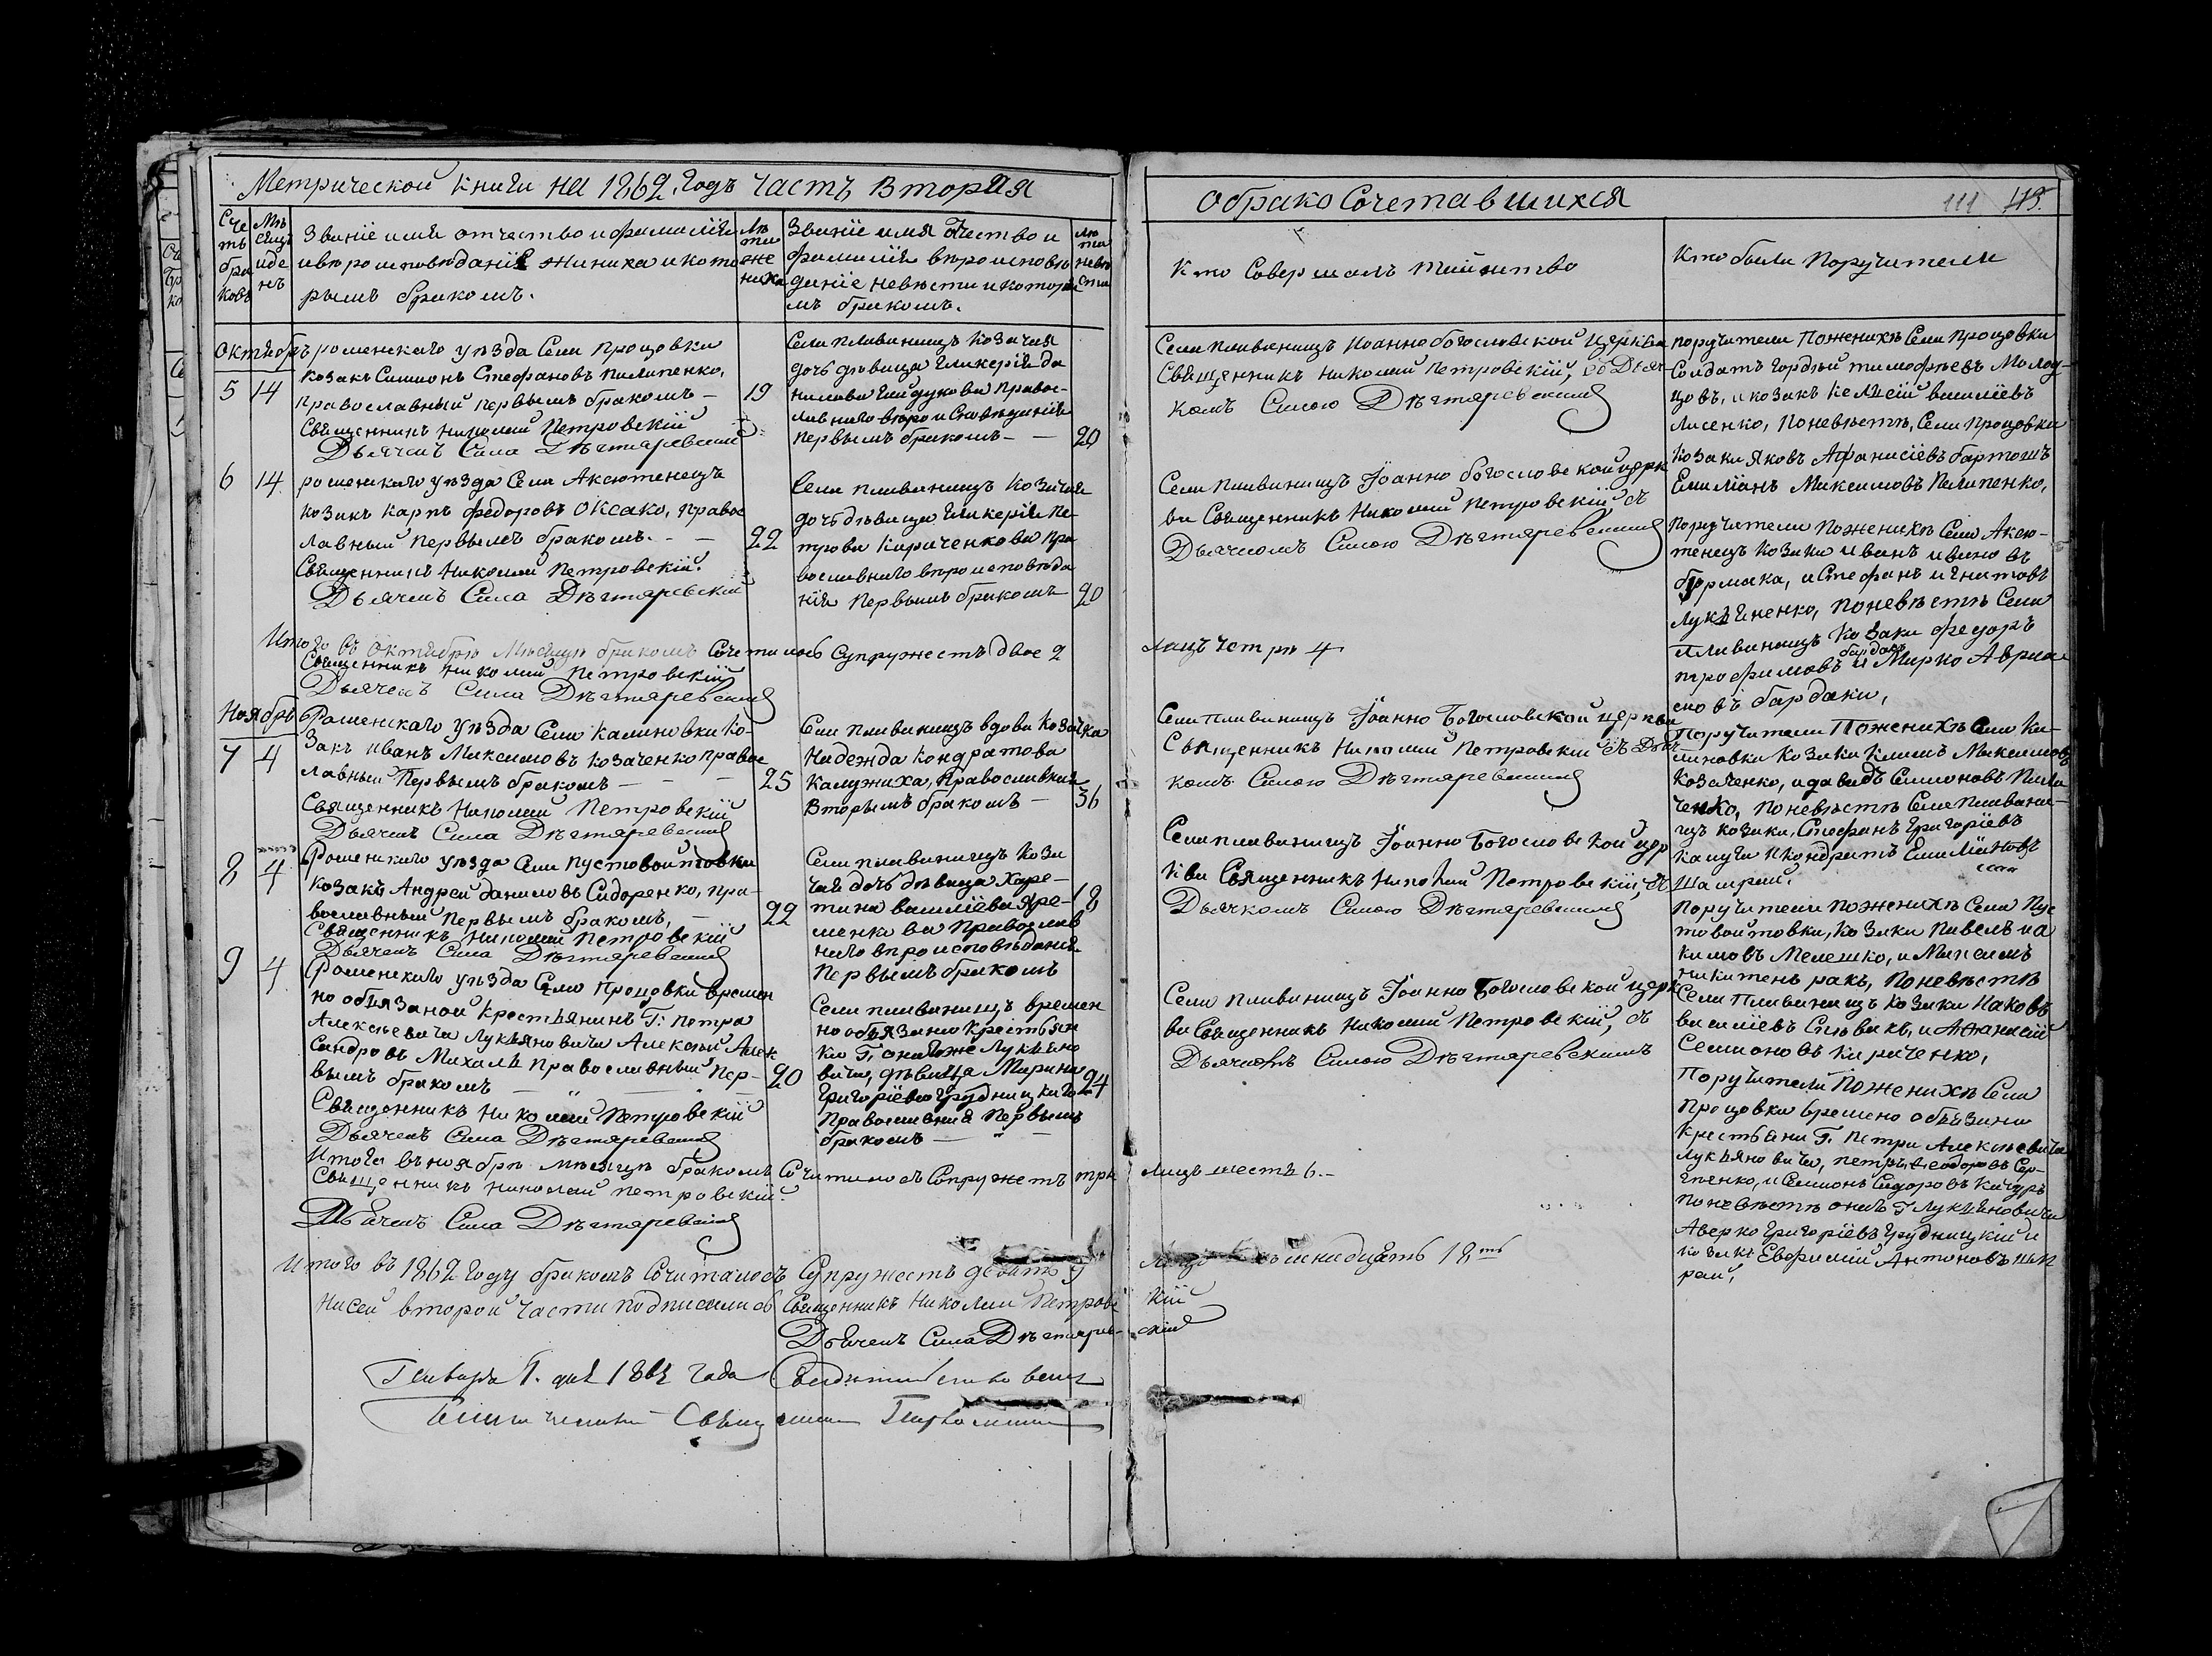 Метрической книги на 1862. Годъ часть Вторая
о бракосочетавшихся
111 115.
Сче
тъ
бра
ковъ
Мѣ
сяцъ
и де
нь
Званіе имя отчество и фамилія
и вѣроисповѣданіе жениха и кото
рымъ бракомъ.
Лѣ
та
же
ниха
Званіе имя отчество и
фамилія вѣроисповѣ
даніе невѣсты и которы
мъ бракомъ.
лѣ
та
невѣ
сты
Кто Совершалъ таинство
Кто были Поручители
Октябрь
5 14
роменскаго уѣзда Села Процовки
козакъ Симионъ Стефановъ Пилипенко,
православный первымъ бракомъ —
19
Священникъ Николай Петровскій
Дьячекъ Сила Дѣгтяревскій
Села Пливаницъ козачая
дочь дѣвица Гликерія Да
нилова Гайдукова правос-
лавнаго вѣроисповѣданія
первымъ бракомъ — —
20
Села Пливаницъ Иоанно богословской Церкви
Священникъ Николай Петровскій, со Дьяч-
комъ Силою Дѣгтяревскимъ
поручители По женихѣ Села Процовки
Солдатъ Гордѣй тимофѣевъ Молод-
цовъ, и козакъ Келисей василіевъ
Лисенко, По невѣстѣ, Села Процовки
козаки Яковъ Афанасіевъ бартошъ
Емиліанъ Максимовъ Пилипенко,
6 14
роменскаго уѣзда Села Аксютенецъ
козакъ Карпъ Федоровъ Оксако, правос
лавный первымъ бракомъ. — —
22
Священникъ Николай Петровскій.
Дьячекъ Сила Дѣгтяревскій
Села Пливаницъ козачая
дочь дѣвица Гликерія Пе-
трова Кириченкова пра
вославнаго вѣроисповѣда
нія первымъ бракомъ
20
Села Пливаницъ Іоанно богословской церк
ви Священникъ Николай Петровскій, съ
Дьячкомъ Силою Дѣгтяревскимъ
Поручители по женихѣ Села Аксю-
тенецъ козаки иванъ ивановъ
бурмака, и Стефанъ игнатовъ
Лукьяненко, по невѣстѣ Села
Пливаницъ козаки федоръ
трофимовъ бардакъ и Мирко Аврам
ловъ бардаки,
Итого въ Октябрѣ Мѣсяцѣ бракомъ Сочеталось Супружествъ двое 2
лицъ четыре 4
Священникъ николай Петровскій
Дьячекъ Сила Дѣгтяревскій
Ноябрь
7 4
Роменскаго уѣзда Села Калиновки Ко-
закъ Иванъ Максимовъ козаченко правос
лавный первымъ бракомъ — — —
25
Священникъ Николай Петровскій
Дьячекъ Сила Дѣгтяревскій
Села Пливаницъ вдова козачка
Надежда Кондратова
Калужиха, Православная
вторымъ бракомъ —
36
Села Пливаницъ Іоанно Богословской церкви
Священникъ Николай Петровскій съ Дьяч-
комъ Силою Дѣгтяревскимъ
Поручители По женихѣ Села Ка-
линовки козаки Климъ Максимовъ
Козаченко, и давидъ Симоновъ Пили
ченко, по невѣстѣ Села Пливани-
цъ козаки, Стефанъ Григоріевъ
Калуга и Кондратъ Емиліановъ
Шапрай.
8 4
Роменскаго уѣзда Села Пустовойтовки
козакъ Андрей Даниловъ Сидоренко, пра-
вославный первымъ бракомъ, —
22
Священникъ Николай Петровскій
Дьячекъ Сила Дѣгтяревскій
Села Пливаницъ коза
чая дочь дѣвица Харе-
тина василіева Яре-
менкова Православ
наго вѣроисповѣданія
Первымъ бракомъ
18
Села Пливаницъ Іоанно Богословской цер
кви Священникъ Николай Петровскій, съ
Дьячкомъ Силою Дѣгтяревскимъ
Поручители по женихѣ Села Пус
товойтовки, козаки Павелъ иа
кимовъ Мелешко, и Максимъ
никитенъ ракъ, по невѣстѣ
Села Пливаницъ козаки Иаковъ
василіевъ Спивакъ, и Афанасій
Семионовъ кириченко,
9 4
Роменскаго уѣзда Села Процовки времен
но обязаной крестьянинъ Г: Петра
Алексѣевича Лукьяновича Алексѣй Алек
сандровъ Михаль православный Пер-
вымъ бракомъ — — —
20
Священникъ Николай Петровскій
Дьячекъ Сила Дѣгтяревскій
Села Пливаницъ времен
но обязана крестьян
ка Г. онаго же Лукьяно
вича, дѣвица Марина
Григоріева Грудницкаго
Православная Первымъ
бракомъ —
24
Села Пливаницъ Іоанно Богословской церк
ви Священникъ Николай Петровскій, съ
Дьячкомъ Силою Дѣгтяревскимъ
Поручители По женихѣ Села
Процовки времено обязани
крестьяни Г. Петра Алексѣевича
Лукьяновича, петръ Феодоровъ Сер-
гѣенко, и Семионъ Сидоровъ Качуръ
по невѣстѣ онаго Г Лукьяновича
Аверко Григоріевъ Грудницкій и
козакъ Евфимій Антоновъ шап
рай,
Итого въ ноябрѣ мѣсяцѣ бракомъ Сочиталось Супружествъ три
Лицъ шесть 6. —
Священникъ николай петровскій.
Дьячекъ Сила Дѣгтяревскій
Итого въ 1862 году бракомъ Сочиталось Супружествъ девять 9
Лицъ осьмнадцять 18ть
На сей второй части подписались Священникъ Николай Петровс кій
Дьячекъ Сила Дѣгтярев- скій
Генваря 1. дня года Свидѣтельствовалъ
Благочинный Священникъ